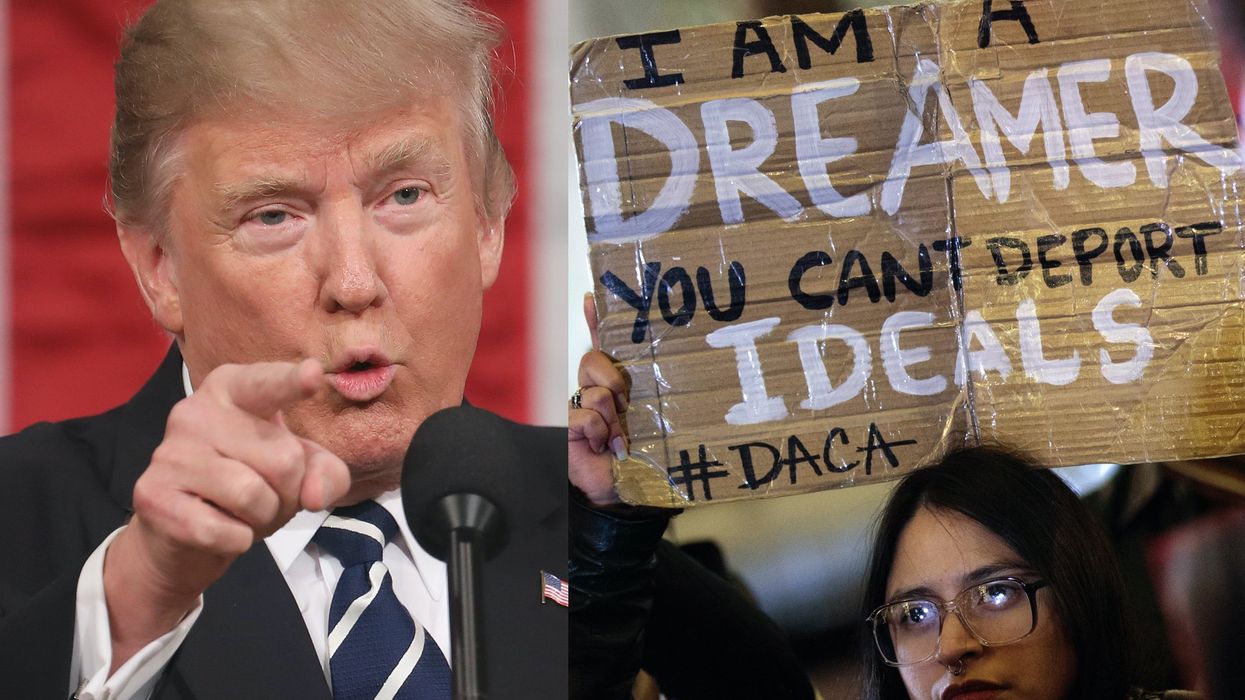 I AM A
DREAMER
YOU CAN'T DEPORT
IDEALS
#DACA